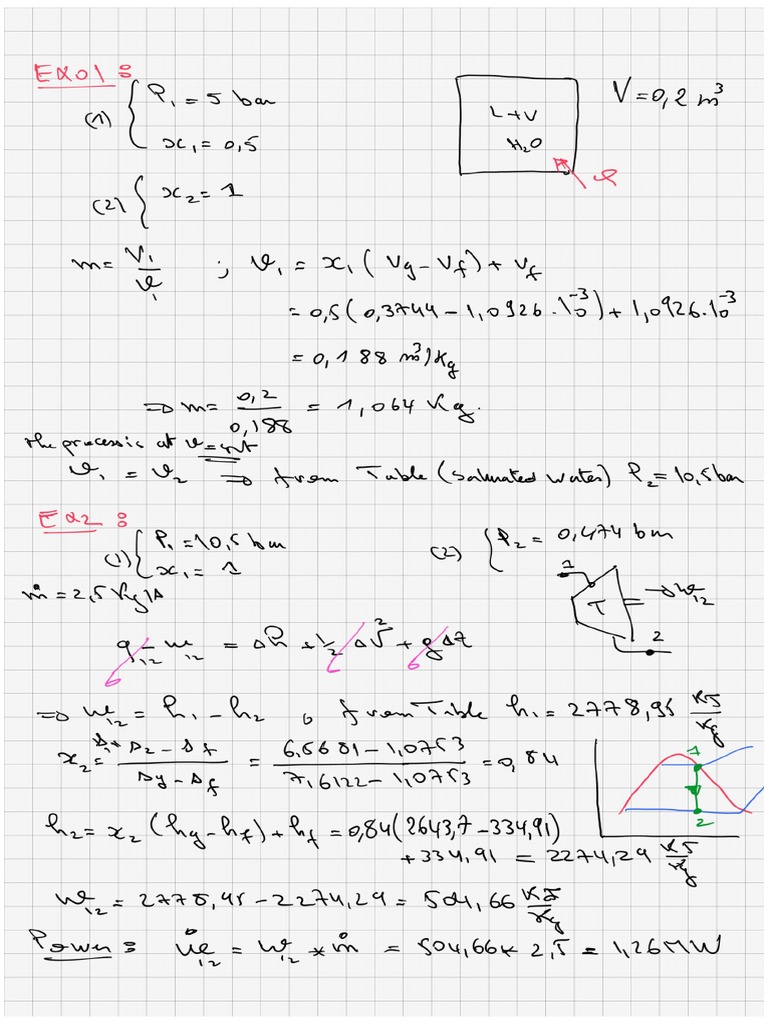 Exo1 :
(1) { P₁ = 5 bar
x₁ = 0,5
L+V
H₂O
V = 0,2 m³
(2) { x₂ = 1
m = V₁/v₁ ; v₁ = x₁ (Vg − Vf) + Vf
= 0,5 (0,3744 − 1,0926 . 10⁻³) + 1,0926.10⁻³
= 0,188 m³/Kg
⇒ m = 0,2/0,188 = 1,064 Kg.
the process is at v = cst
v₁ = v₂ ⇒ from Table (saturated water) P₂ = 10,5 bar
Ex2 :
(1) { P₁ = 10,5 bar
x₁ = 1
(2) { P₂ = 0,474 bar
ṁ = 2,5 Kg/s
1
T → w₁₂
2
q₁₂ − w₁₂ = Δh + ½ ΔV² + gΔz
⇒ w₁₂ = h₁ − h₂ , from Table h₁ = 2778,95 KJ/Kg
x₂ = (s₂ − sf)/(sg − sf) = (6,5681 − 1,0753)/(7,6122 − 1,0753) = 0,84
1
2
h₂ = x₂ (hg − hf) + hf = 0,84 (2643,7 − 334,91)
+ 334,91 = 2274,29 KJ/Kg
w₁₂ = 2778,95 − 2274,29 = 504,66 KJ/Kg
Power : ẇ₁₂ = w₁₂ * ṁ = 504,66 × 2,5 = 1,26 MW